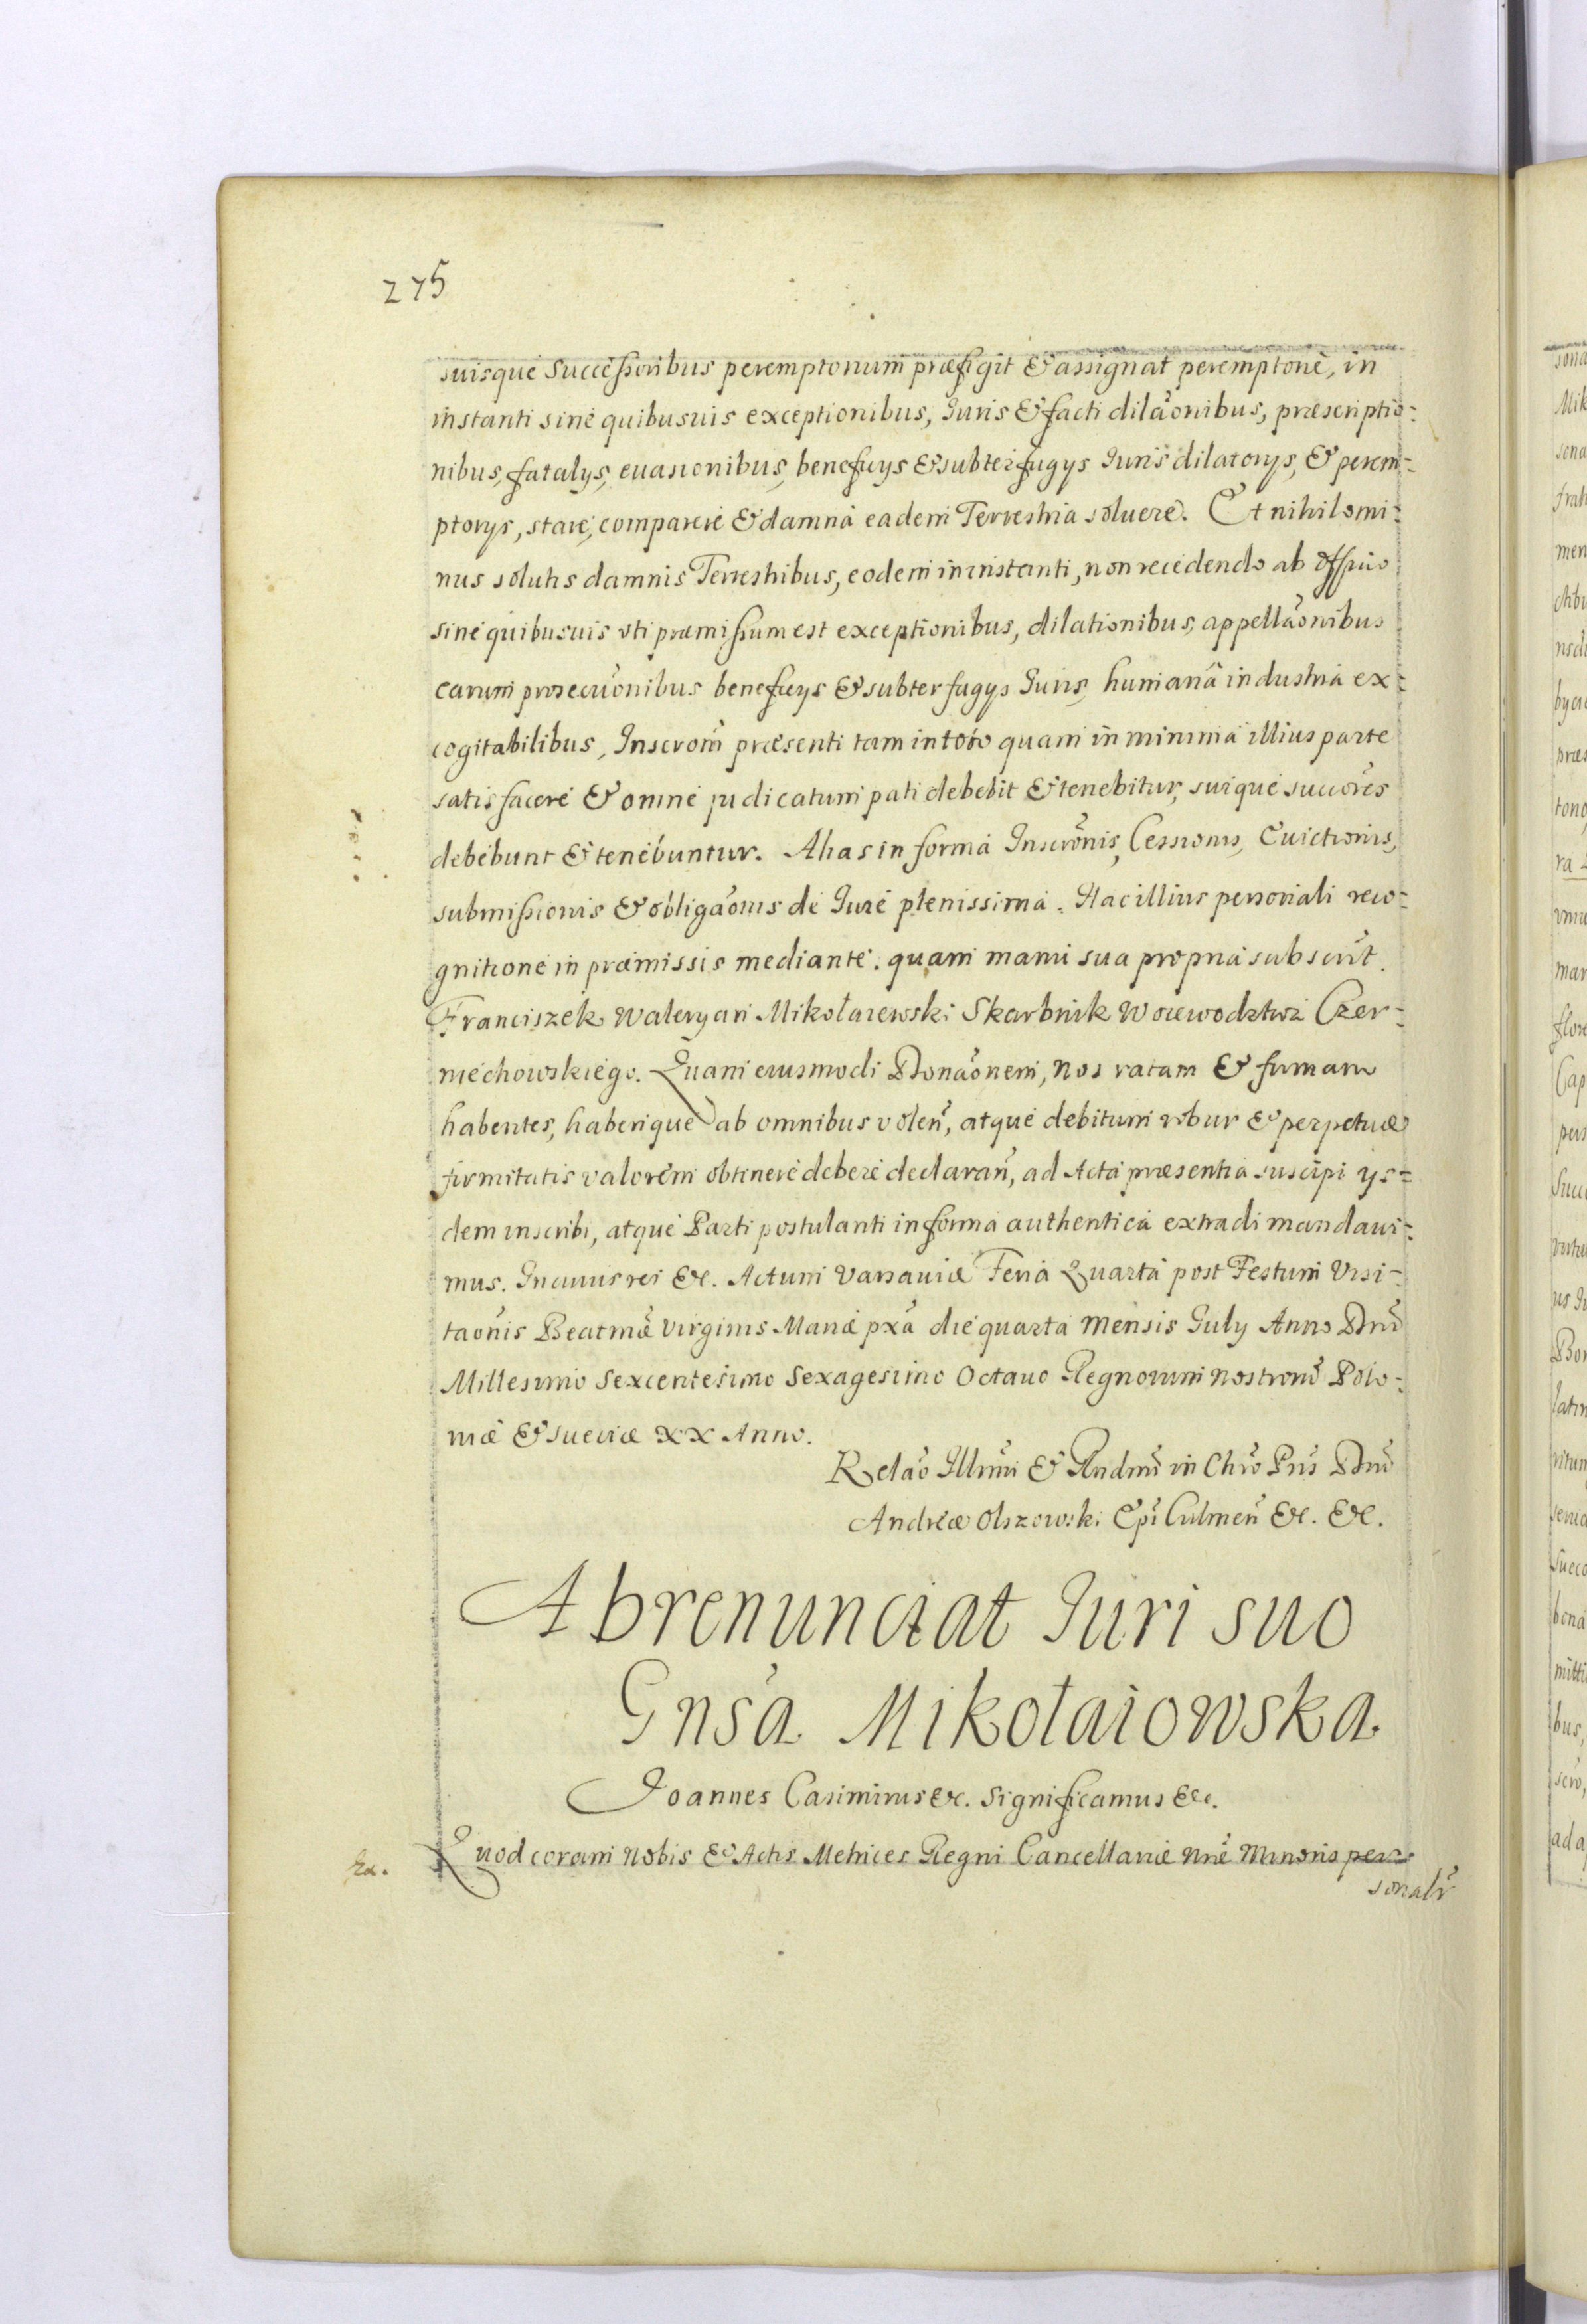 275
suisque Successoribus peremptorium præfigit & assignat peremptorie, in
instanti sine quibusuis exceptionibus, Juris & facti dilaõnibus, præscriptio=
nibus, fatalys, euasionibus, beneficys & subterfugys Juris dilatorys, & perem=
ptorys, stare, comparere & damna eadem Terrestria soluere. Et nihilomi=
nus solutis damnis Terrestribus, eodem in instanti, non recedendo ab Officio
sine quibusuis vti præmissum est exceptionibus, dilationibus, appellaõnibus
earum prosecuõnibus beneficys & subterfugys Juris, humanâ industria ex=
cogitabilibus, Inscrom̃ præsenti tam in toto quam in minima illius parte
satisfacere & omne judicatum pati debebit & tenebitur, suique succõres
debebunt & tenebuntur. Alias in forma Inscrõnis, Cessionis, Euictionis,
submissionis & obligaõnis de Jure plenissima. Hac illius personali reco=
gnitione in præmissis mediante. quam manu sua propria subscrit̃.
Franciszek Waleryan Mikołaiewski Skarbnik Woiewodztwa Czer=
niechowskiego. Quam eiusmodi Donaõnem, nos ratam & firmam
habentes, haberique ab omnibus volen̂, atque debitum robur & perpetuæ
firmitatis valorem obtinere debere declaran̂, ad Acta præsentia suscipi ys=
dem inscribi, atque Parti postulanti in forma authentica extradi mandaui=
mus. In cuius rei &c. Actum Varsauiæ Feria Quarta post Festum Visi=
taõnis Beatmæ̃ Virginis Mariæ pxã die quarta Mensis July Anno Dnĩ
Millesimo Sexcentesimo Sexagesimo Octauo Regnorum Nostrorũ Polo=
niæ & Sueciæ XX Anno.
Relaõ Illmi & Rndmĩ in Chrõ Pris̃ Dnĩ
Andreæ Olszowski Epĩ Culmen̂ &c. &c.
Abrenunciat Juri suo
Gnsã Mikołaiowska
Joannes Casimirus &c. Significamus &c.
Quod coram Nobis & Actis Metrices Regni Cancellariæ Nræ̃ Minoris per=
sonalr̃